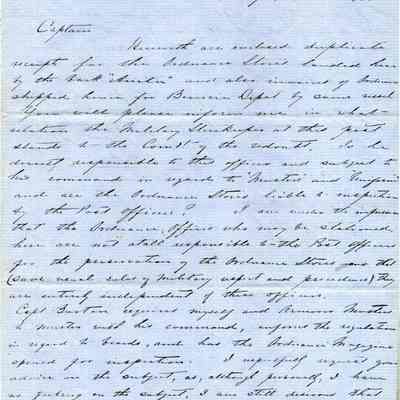 Captain
Herewith are enclosed duplicate
receipts for the Ordnance Stores landed here
by the Bark "Anita" and also invoices of Ordnance
shipped hence for Benicia Depot by same vessel
You will please inform me in what
relation the Military Storekeeper at this post
stands to the Comdt of the redoubt. Is he
direct responsible to that officer and subject to
his command in regards to "Muster" and "Uniform"
and are the Ordnance Stores liable to inspection
by the Post Officer? I am under the impression
that the Ordnance Officers who may be stationed
here are not at all responsible to the Post Officers
for the preservation of the Ordnance Stores and that
(save usual rules of Military respect and precedence) they
are entirely independent of these officers.
Capt Burton requires myself and Armorer Musters
to muster with his command, enforces the regulation
in regard to beards, and has the Ordnance Magazine
opened for inspection. I respectfully request your
advice on the subject, as, although personally, I have
no feeling on the subject, I am still desirous that